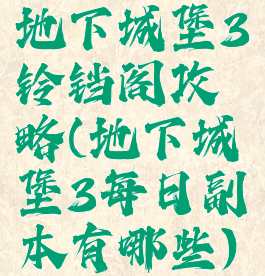 地下城堡3
铃铛阁攻
略(地下城
堡3每日副
本有哪些)